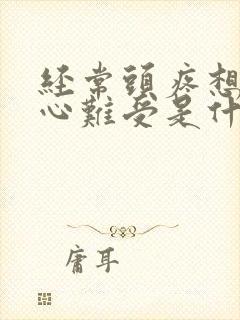 経常頭疼想
心難受是什
庸耳